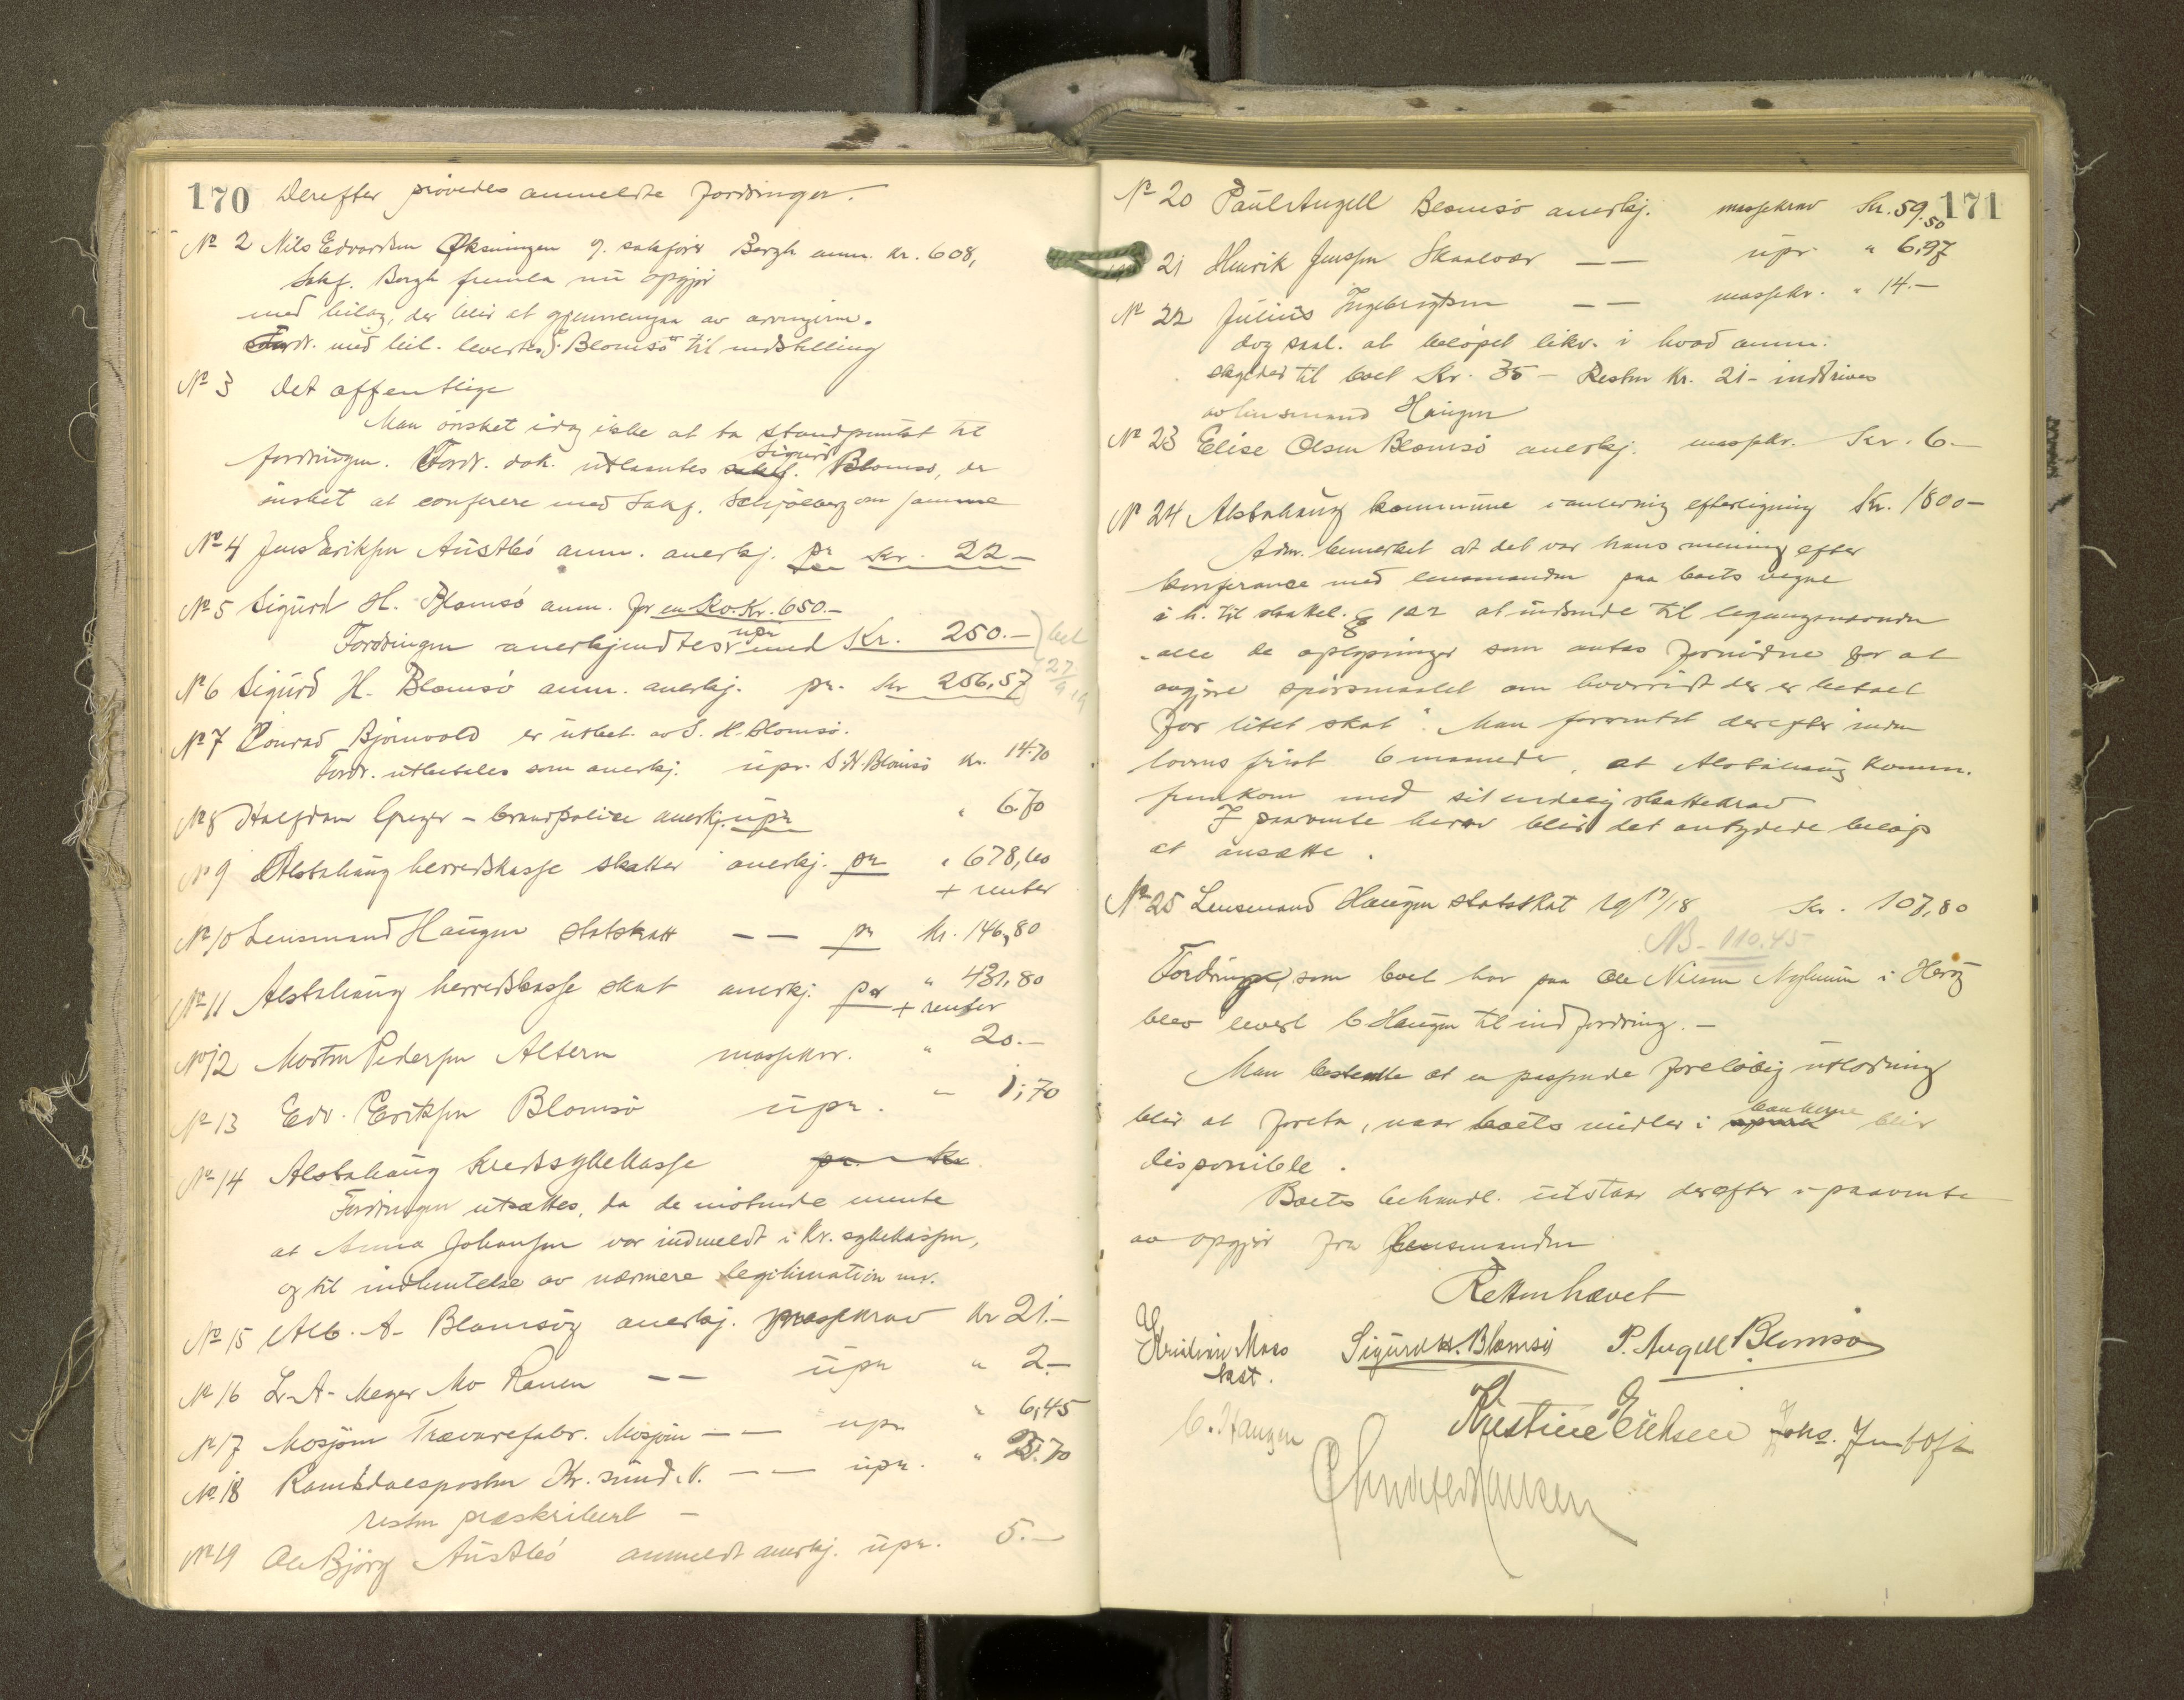 170 Derefter prövedes anmeldte fordringer.
No 2 Nils Edvardsen Öksningen v. sakförer Bergh anm. kr. 608,
Sakf. Bergh fremla nu opgjör
med bilag, der blir at gjennemgaa av arvingerne.
Fordr. med bil. levertes S. Blomsö til indstilling
No 3 Det offentlige
Man önsket idag ikke at ta standpunkt til
fordringen. Fordr. dok. utlaantes Sigurd Blomsö, der
önsket at conferere med Sakf. Schjölberg om samme
No 4 Jens Eriksen Austbö anm. anerkj. pr kr. 22-
No 5 Sigurd H. Blomsö anm. for en Ko. Kr. 650.-
Fordringen anerkjendtes upr med Kr. 250.- bet
No 6 Sigurd H. Blomsö anm. anerkj. pr. kr 256,57 27/9 19
No 7 Conrad Björnvold er utbet. av S. H. Blomsö.
Fordr. utbetales som anerkj. upr. S.H. Blomsö kr. 14.70
No 8 Halfdan - brandpolice anerkj. upr " 6.70
No 9 Alstahaug herredskasse skatter anerkj. pr " 678,60
+ renter
No 10 Lensmand Haugen statskatt — — pr kr. 146,80
No 11 Alstahaug herredskasse skat anerkj. pr " 431,80
+ renter
No 12 Morten Pedersen Altern massekrv. " 20.-
No 13 Edv. Eriksen Blomsö upr. - 1,70
No 14 Alstahaug kredssykekasse pr. kr
Fordringen utsættes, da de mötende mente
at Anna Johansen var indmeldt i Kr. sykekassen,
og til indhentelse av nærmere legitimation mv.
No 15 Alb. A. Blomsö anerkj. massekrav kr 21.-
No 16 L. A. Meyer Mo Ranen — — upr " 2.-
No 17 Mosjöen Trævarefabr. Mosjöen — — upr " 6,45
No 18 Romsdalsposten Kr.sund. N. — — upr. " 3.70
resten præskribert -
No 19 Ole Bjórg Austbö anmeldt anerkj. upr. 5.-
No 20 Paul Angell Blomsö anerkj. massekrav Kr. 59.50 171
21 Henrik Jenssen Skaalvær — — upr. " 6,97
No 22 Julius Ingebrigtsen — — massekr. " 14.-
dog saal. at beløpet likv. i hvad anm.
skylder til boet Kr. 35 - Resten kr. 21- inddrives
av lensmand Haugen
No 23 Elise Olsen Blomsö anerkj. massekr. Kr. 6.-
No 24 Alstahaug kommune i anledning efterligning Kr. 1800-
Adm. bemerket at det var hans mening efter
konferance med lensmanden paa boets vegne
i h. til skattel. § 122 at indsende til ligningsnævnden
"alle de oplysninger som antas fornödne for at
avgjöre spörsmaalet om hvorvidt der er betalt
for litet skat". Man forventet derefter inden
lovens frist 6 maaneder, at Alstahaug komm.
fremkom med sit endelig skattekrav
I paavente herav blir det antydede belöp
at avsætte.
No 25 Lensmand Haugen statsskat 1917/18 Kr. 107,80
NB - 110.45
Fordringen, som boet har paa Ole Nilsen Nyheim i Heröy
blev levert C Haugen til indfordring. -
Man bestemte at en passende foreløbig utlodning
blir at foreta, naar boets midler i bankerne blir
disponible.
Boets behandl. utstaar derefter i paavente
av opgjör fra lensmanden
Retten hævet
Kristian Moes Sigurd H. Blomsö P. Angell Blomsö
Kast.
C. Haugen Kristine Eriksen Johs. Jentoft
Hansen